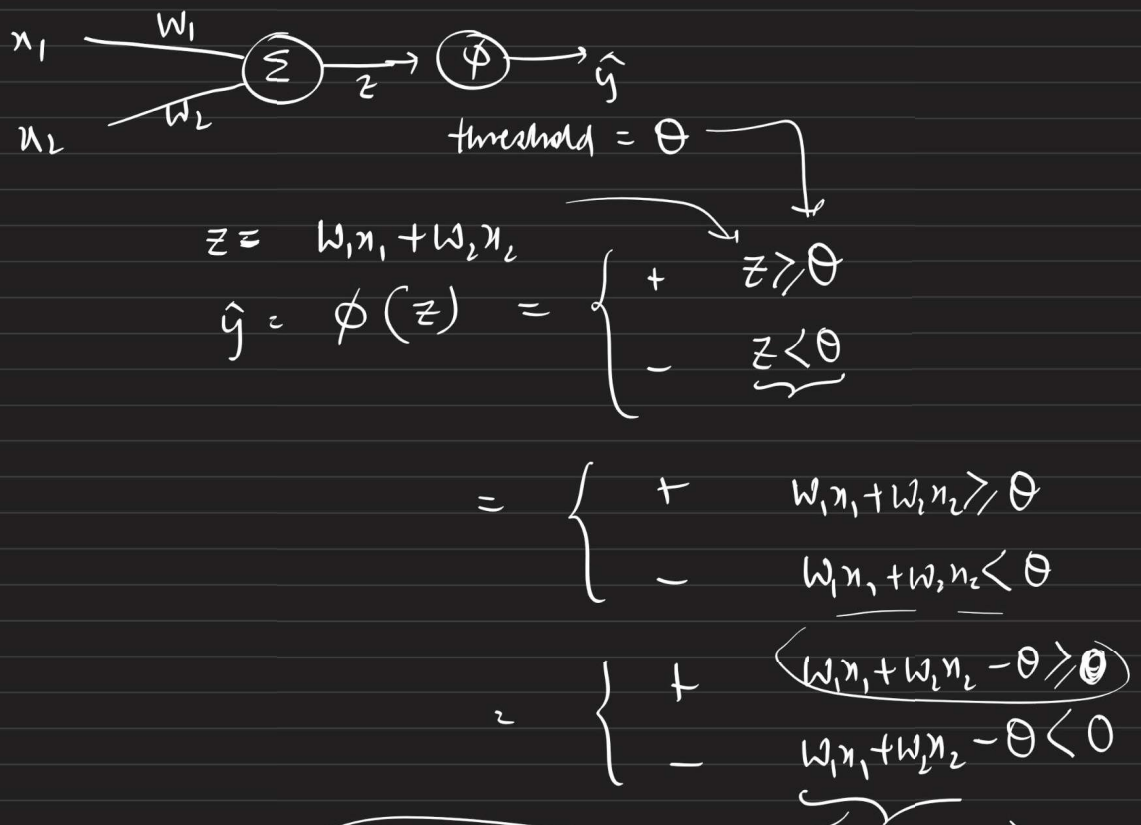 x₁ W₁ Σ z → φ → ŷ
x₂ W₂
threshold = θ
z = W₁x₁ + W₂x₂
ŷ = φ(z) = { + z ≥ θ
− z < θ
= { + W₁x₁ + W₂x₂ ≥ θ
− W₁x₁ + W₂x₂ < θ
= { + W₁x₁ + W₂x₂ − θ ≥ 0
− W₁x₁ + W₂x₂ − θ < 0